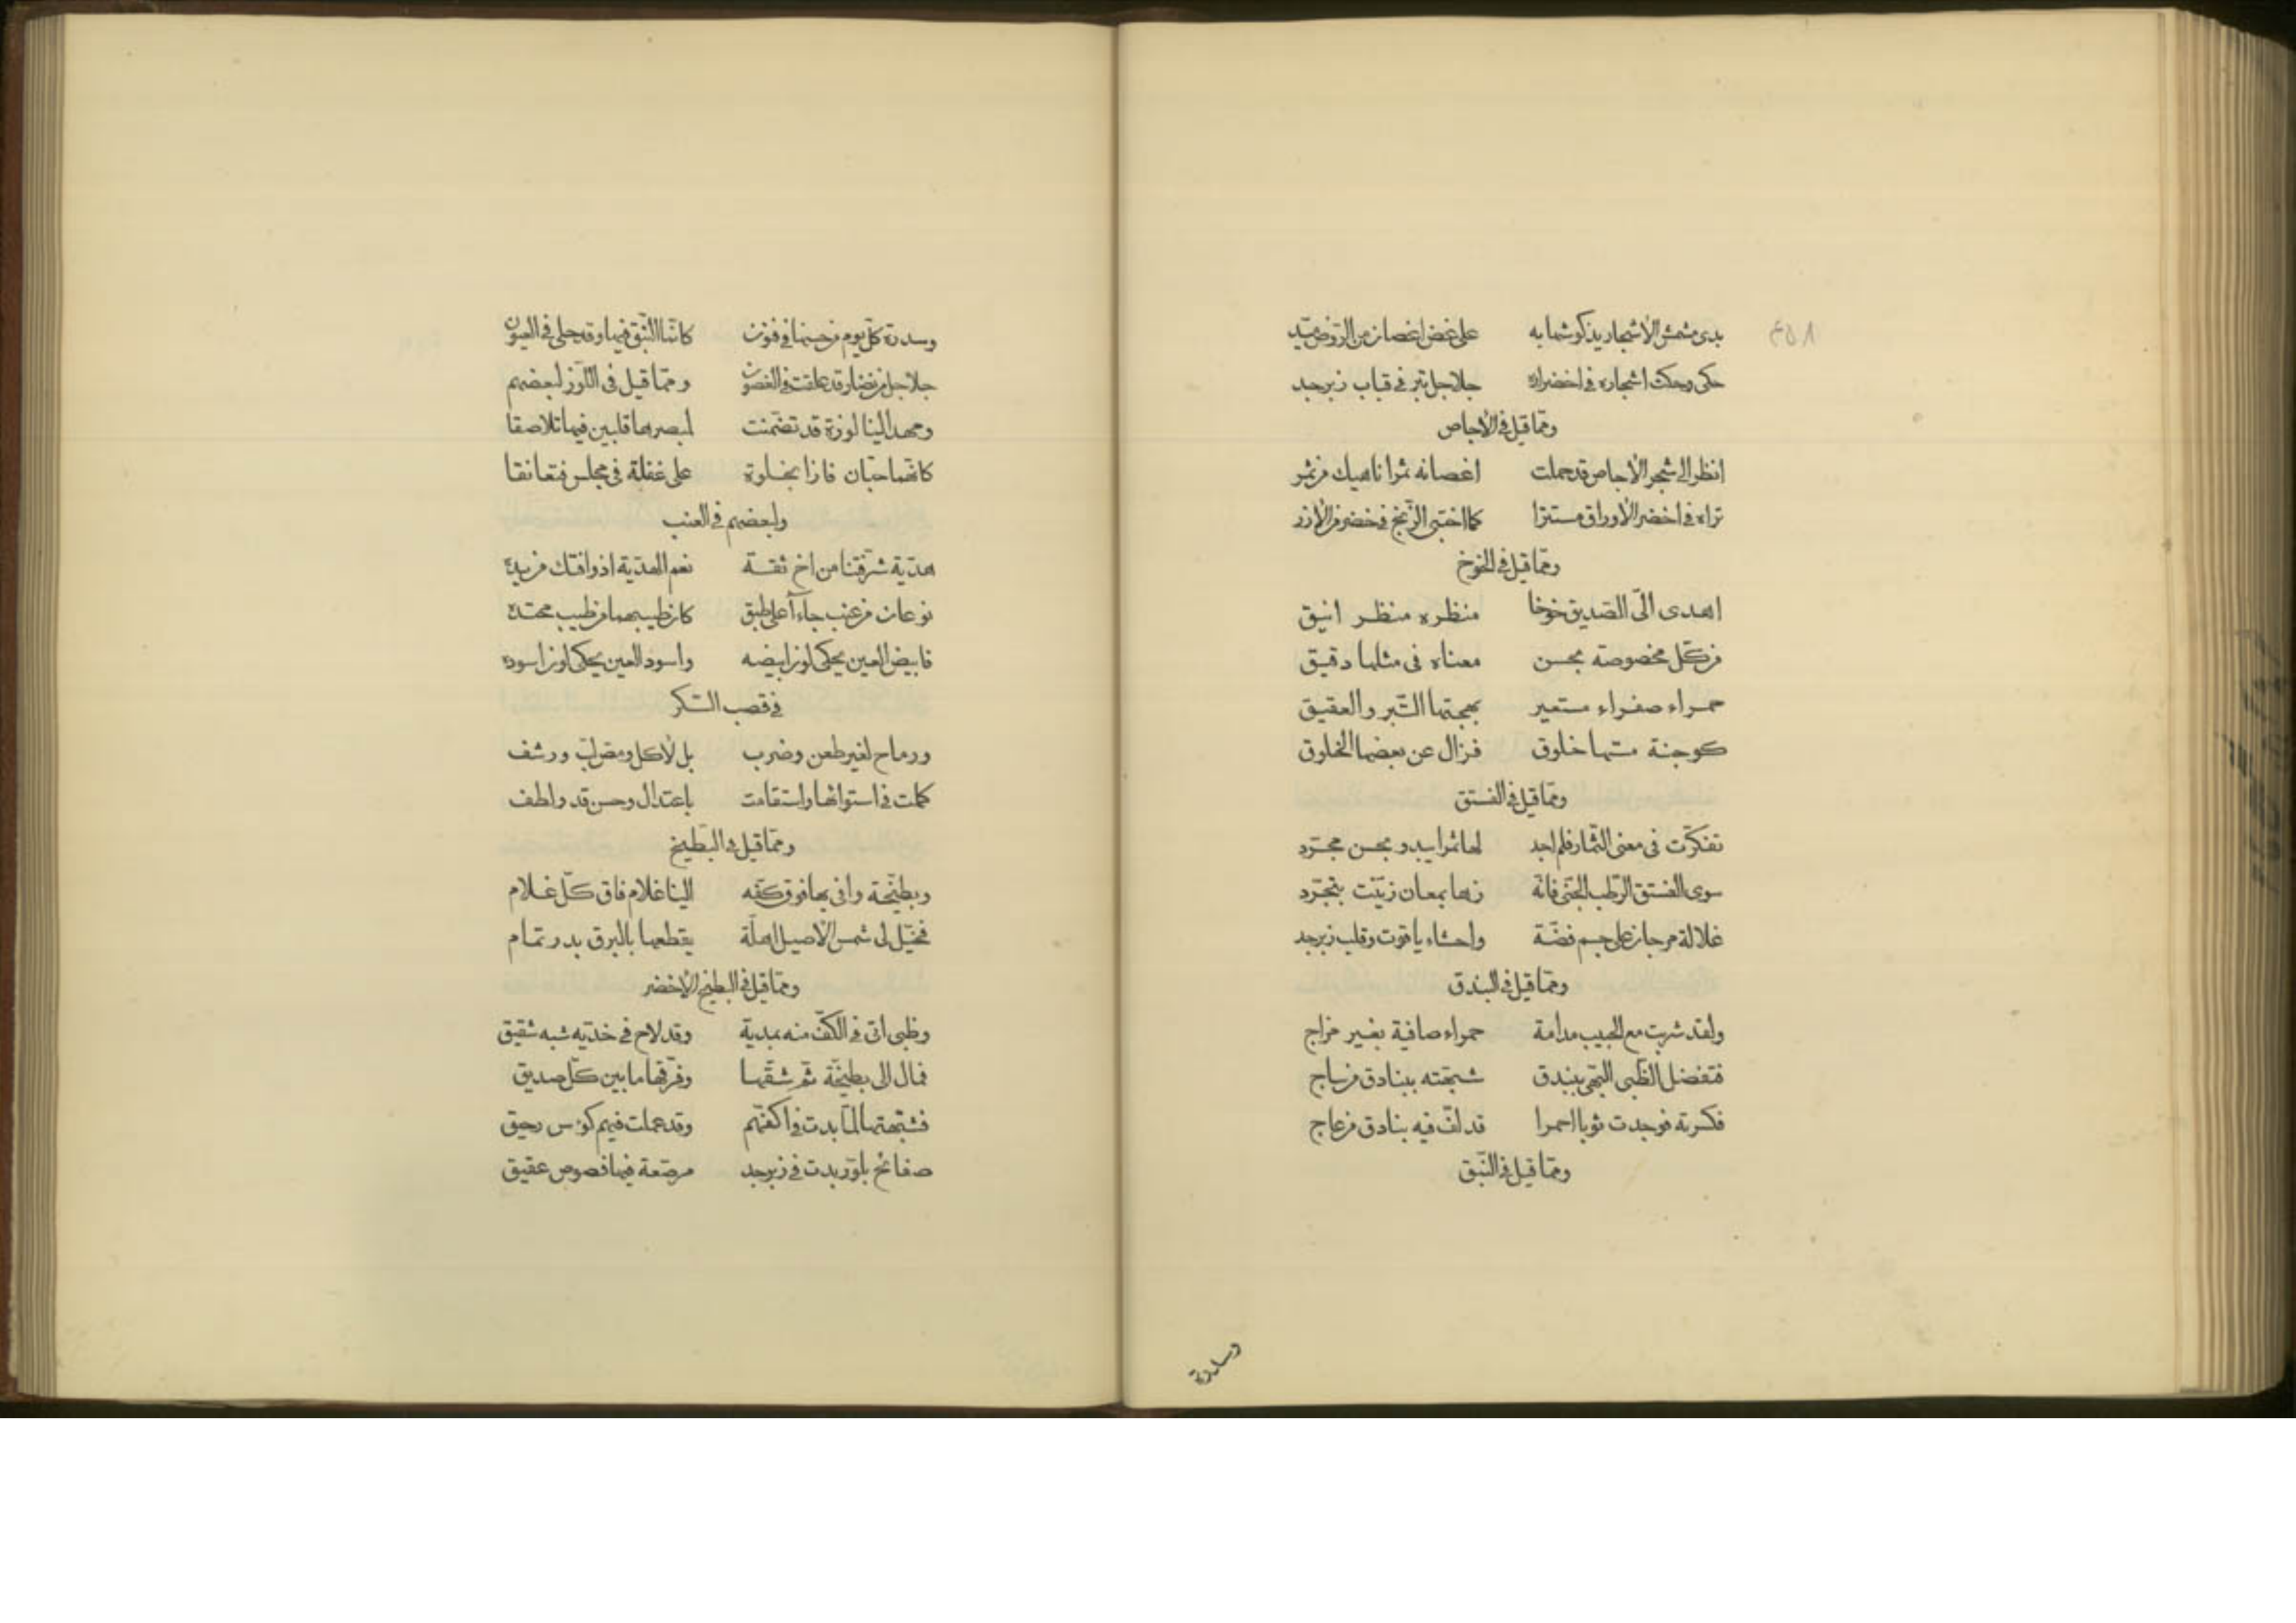 بدى مشمش الأشجار يذكو شهابه على غض اغصان من الروض ميد
٤٥٨
حكى وحكت اشجاره فى اخضراره جلاجل تبر فى قباب زبرجد
ومما قيل فى الأجاص
انظر الى شجر الأجاص قد حملت اغصانه ثمرا ناهيك من ثمر
تراه فى اخضر الأوراق مستترا كما اختبى الزنج فى خضر من الأزر
ومما قيل فى الخوخ
اهدى الىّ الصديق خوخا منظره منظر انيق
من كلّ مخصوصة بحسن معناه فى مثلها دقيق
حمراء صفراء مستعير بهجتها التّبر والعقيق
كوجنة مسّها خلوق فزال عن بعضها الخلوق
ومما قيل فى الفستق
تفكّرت فى معنى الثّمار فلم اجد لها ثمرا يبدو بحسن مجرّد
سوى الفستق الرّطب الجنى فانّه زها بمعان زيّنت بتجرّد
غلالة مرجان على جسم فضّة واحشاء ياقوت وقلب زبرجد
ومما قيل فى البندق
ولقد شربت مع الحبيب مدامة حمراء صافية بغير مزاج
فتفضل الظّبى البهى ببندق شبهته ببنادق من ساج
فكسرته فوجدت ثوبا احمرا قد لفّ فيه بنادق من عاج
ومما قيل فى النّبق
وسدرة
وسدرة كلّ يوم من حسنها فى فنون كانّما النّبق فيها وقد حلى فى العيون
جلاجل من نضار قد علقت فى الغصون ومما قيل فى اللّوز لبعضهم
ومهد الينا لوزة قد تضمّنت لمبصرها قلبين فيها تلاصقا
كانّهما حبّان فازا بخلوة على غفلة فى مجلس فتعانقا
ولبعضهم فى العنب
هديّة شرّفتنا من اخ ثقة نعم الهديّة اذ وافتك من يده
نوعان من عنب جاءآ على طبق كان طيبهما من طيب محتده
فابيض العين يحكى لون ابيضه واسود العين يحكى لون اسوده
فى قصب السّكر
ورماح لغير طعن وضرب بل لأكل ومصّ لبّ ورشف
كملت فى استوائها واستقامت باعتدال وحسن قد ولطف
ومما قيل فى البطّيخ
وبطّيخة وافى بها فوق كفّه الينا غلام فاق كلّ غلام
فخيّل لى شمس الأصيل اهلّة يقطعها بالبرق بدر تمام
ومما قيل فى البطيخ الأخضر
وظبى اتى فى الكفّ منه بمدية وقد لاح فى خدّيه شبه شقيق
فمال الى بطيخة ثم شقّها وفرّقها ما بين كلّ صديق
فشبّهتها لمّا بدت فى اكفّهم وقد عملت فيهم كؤس رحيق
صفائح بلّور بدت فى زبرجد مرصّعة فيها فصوص عقيق